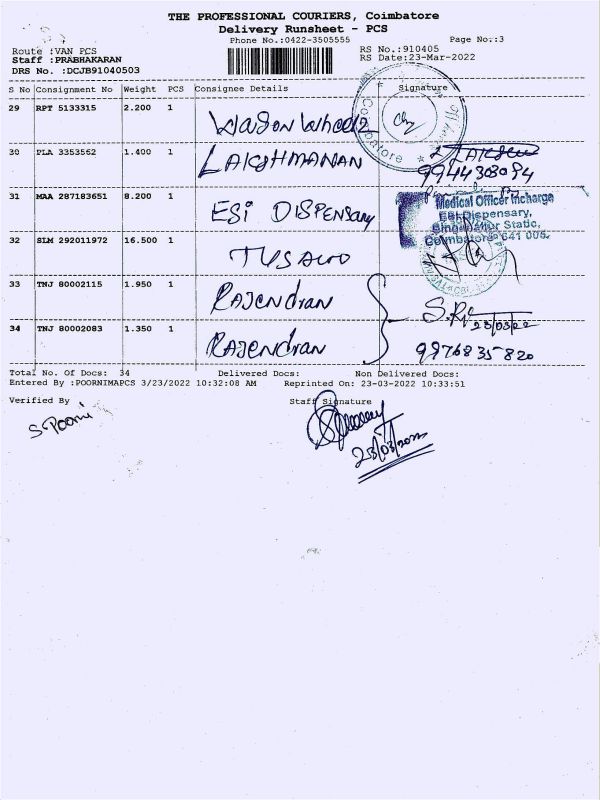 THE PROFESSIONAL COURIERS, Coimbatore
Delivery Runsheet - PCS
Phone No.:0422-3505555 Page No.:3
Route :VAN PCS RS No.:910405
Staff :PRABHAKARAN RS Date:23-Mar-2022
DRS No. :DCJB91040503
S No Consignment No Weight PCS Consignee Details Signature
29 RPT 5133315 2.200 1 Wagon Wheelz
Coimbatore
30 PLA 3353562 1.400 1 LAKSHMANAN
9944303094
31 MAA 287183651 8.200 1 ESI DISPENSARY
Medical Officer Incharge
ESI Dispensary,
Coimbatore 641 005.
32 SLM 292011972 16.500 1 TVS AUTO
33 TNJ 80002115 1.950 1 RAJENDRAN
23/03/22
34 TNJ 80002083 1.350 1 RAJENDRAN
9976835820
Total No. Of Docs: 34 Delivered Docs: Non Delivered Docs:
Entered By :POORNIMAPCS 3/23/2022 10:32:08 AM Reprinted On: 23-03-2022 10:33:51
Verified By Staff Signature
S. Poorni
23/03/2022